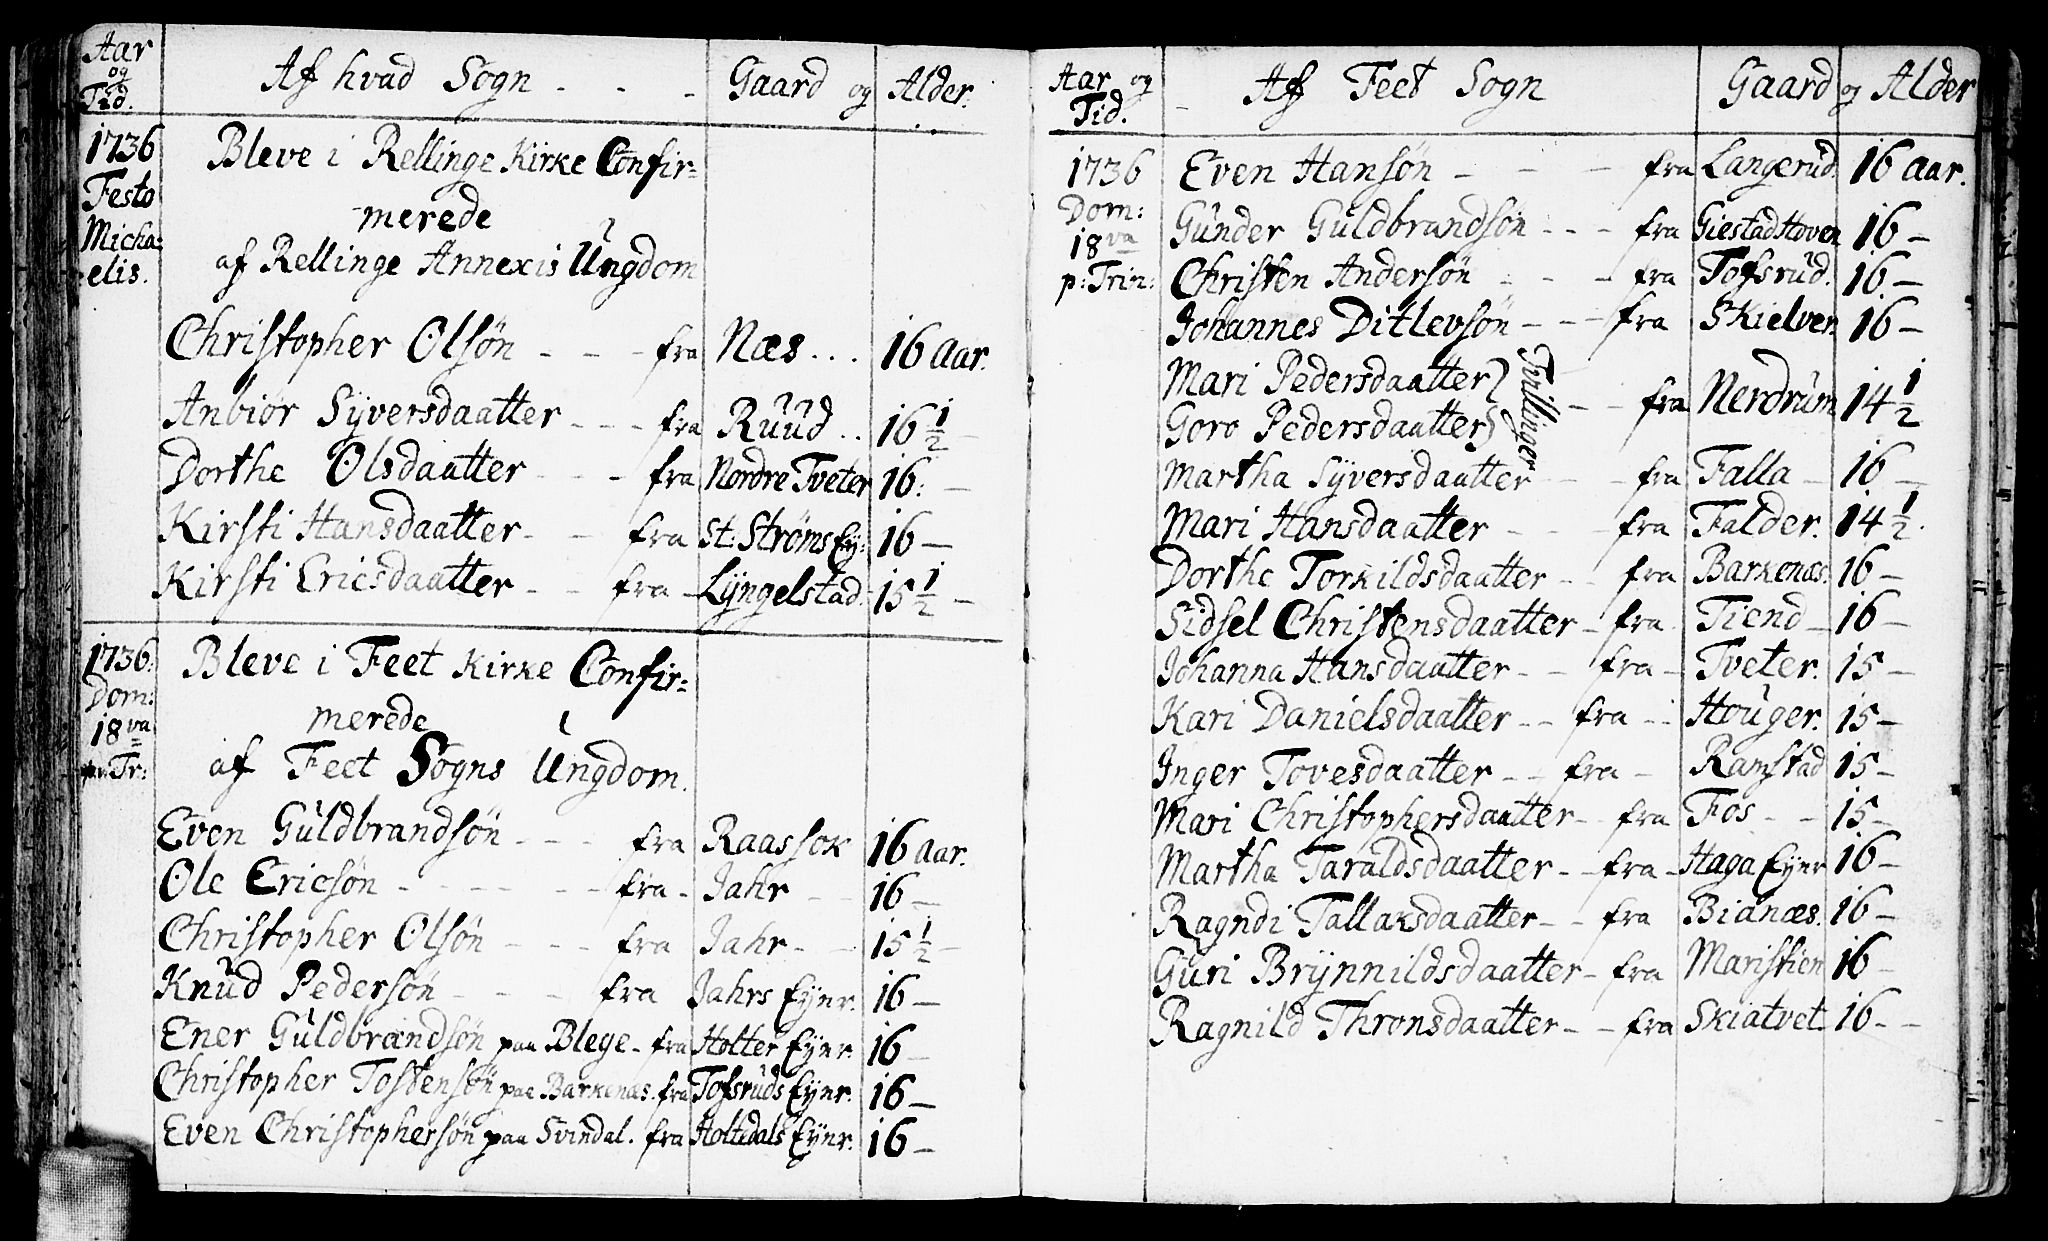 Aar og Tid. Af hvad Sogn - - - Gaard og Alder.
1736 Festo Micha= elis.
Bleve i Rellinge Kirke Confir=
merede
af Rellinge Annexis Ungdom
Christopher Olsøn - - - fra Næs . . . 16 Aar.
Anbiør Syversdaatter - - - fra Ruud . . 16 1/2 -
Dorthe Olsdaatter - - - fra Nordre Tveter 16: -
Kirsti Hansdaatter - - fra St: Strøms Ey: 16 -
Kirsti Ericsdaatter - - fra - Lyngelstad. 15 1/2 -
1736: Dom: 18va p: Tr:
Bleve i Feet Kirke Confir=
merede
af Feet Sogns Ungdom.
Even Guldbrandsøn - - - fra Raassok 16 Aar.
Ole Ericsøn - - - - - - fra - Jahr - - 16 -
Christopher Olsøn - - - fra Jahr - - 15 1/2 -
Knud Pedersøn - - - fra Jahrs Eynr. 16 -
Ener Guldbrandsøn paa Blege - fra Holter Eynr. 16 -
Christopher Tostensøn paa Barkenæs. fra Tofsruds Eynr. 16 -
Even Christophersøn paa Svindal. fra Holtedals Eynr. 16 -
Aar og Tid. - Af Feet Sogn Gaard og Alder
1736 Dom: 18va p: Trin:
Even Hansøn - - - fra Langerud. 16 Aar.
Gunder Guldbrandsøn - - - fra Giestad Hoven 16 -
Christen Andersøn - - - fra Tofsrud. 16 -
Johannes Ditlevsøn - - - fra Skielven 16 -
Mari Pedersdaatter
Goro Pedersdaatter Tvillinger - - fra Nerdrum 14 1/2
Martha Syversdaatter - - - fra Falla - 16 -
Mari Hansdaatter - - - fra Falder. 14 1/2.
Dorthe Torkildsdaatter - - fra Barkenæs. 16 -
Sidsel Christensdaatter - fra Tiend - 16 -
Johanna Hansdaatter - - fra - Tveter. 15 -
Kari Danielsdaatter - - fra - - Houger. 15 -
Inger Tovesdaatter - - fra - Ramstad 15 -
Mari Christophersdaatter - fra Fos - - 15 -
Martha Taraldsdaatter - - fra - Haga Eynr 16 -
Ragndi Tallaksdaatter - - fra Bianæs. 16 -
Guri Brynnildsdaatter - fra Maristien 16 -
Ragnild Thronsdaatter - - fra Skiatvet 16 - -